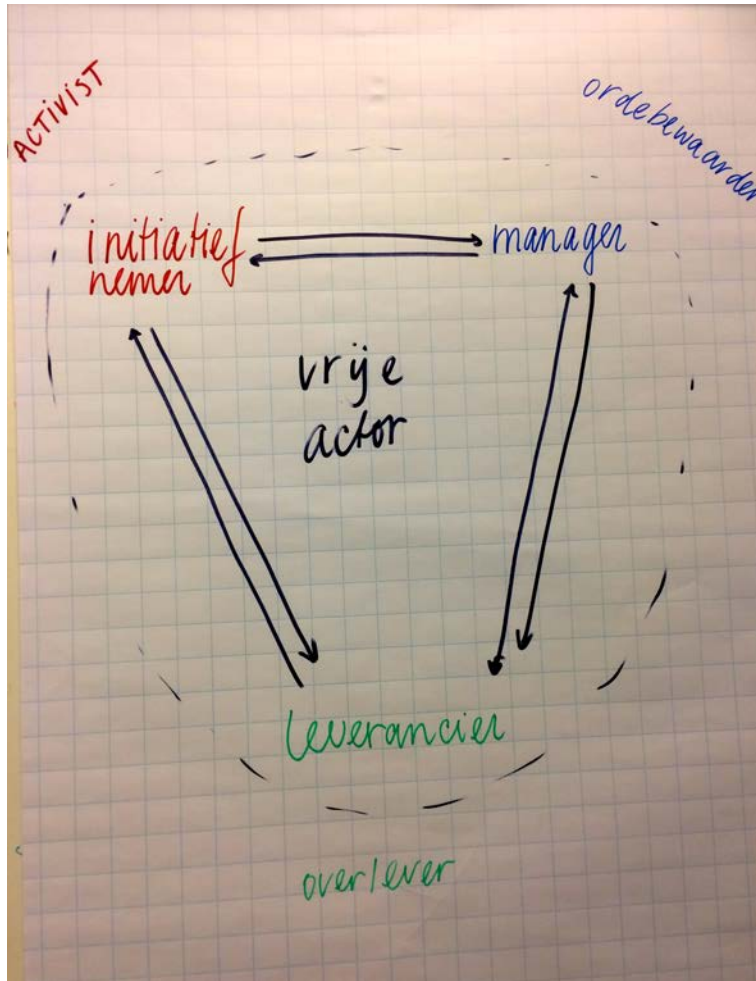 ACTIVIST
ordebewaarder
initiatief
nemer
manager
vrije
actor
leverancier
overlever